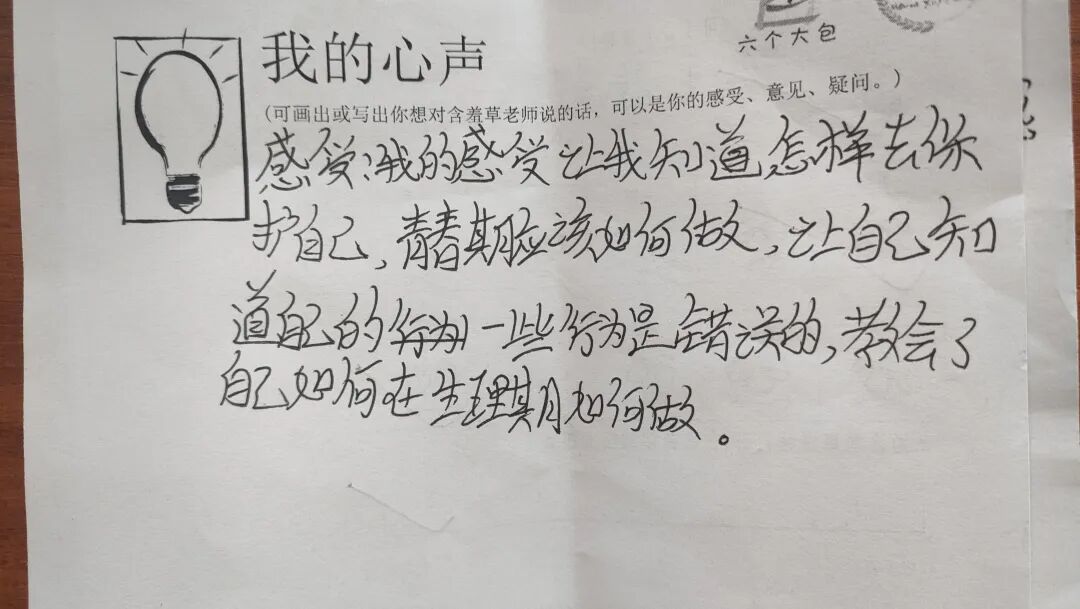 六个大包
我的心声
(可画出或写出你想对含羞草老师说的话，可以是你的感受、意见、疑问。)
感受：我的感受让我知道，怎样去保
护自己，青春期应该如何做，让自己知
道自己的行为一些行为是错误的，教会了
自己如何在生理期如何做。